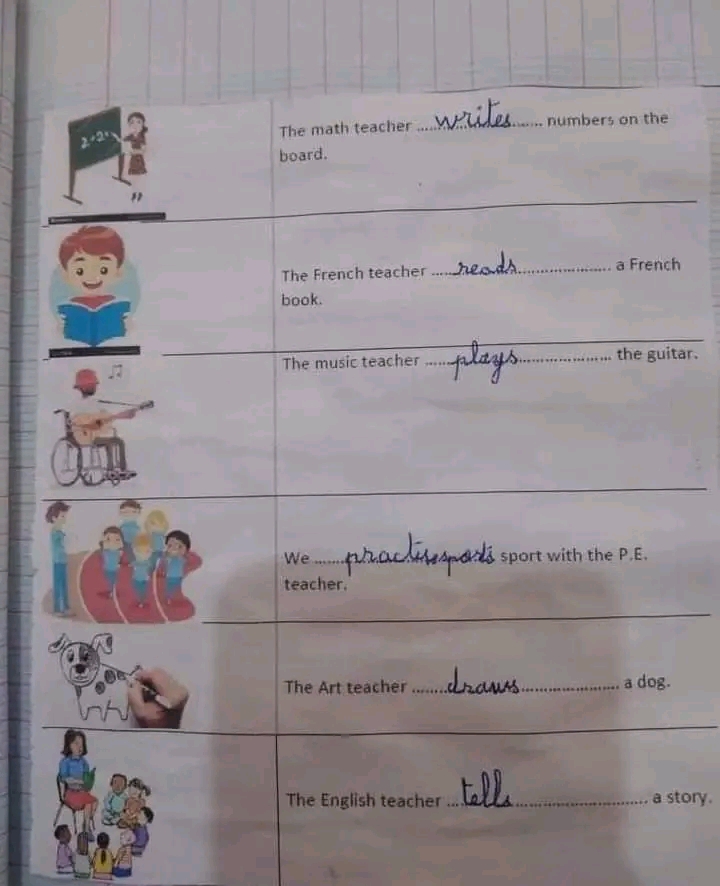 2+2=
The math teacher ......writes....... numbers on the
board.
The French teacher .....reads..................... a French
book.
The music teacher ......plays..................... the guitar.
We ......practise sports sport with the P.E.
teacher.
The Art teacher ........draws..................... a dog.
The English teacher ...tells............................ a story.